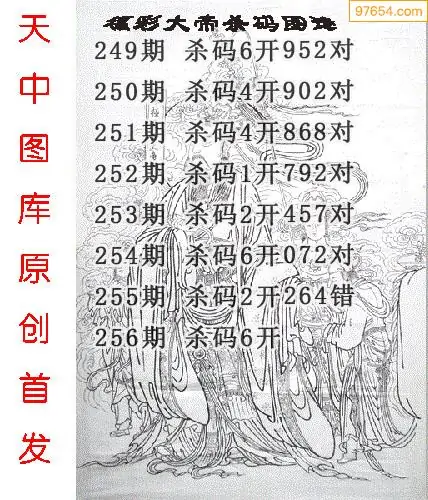 97654.com
福彩大帝杀码图谜
249期 杀码6开952对
250期 杀码4开902对
251期 杀码4开868对
252期 杀码1开792对
253期 杀码2开457对
254期 杀码6开072对
255期 杀码2开264错
256期 杀码6开
天中图库原创首发